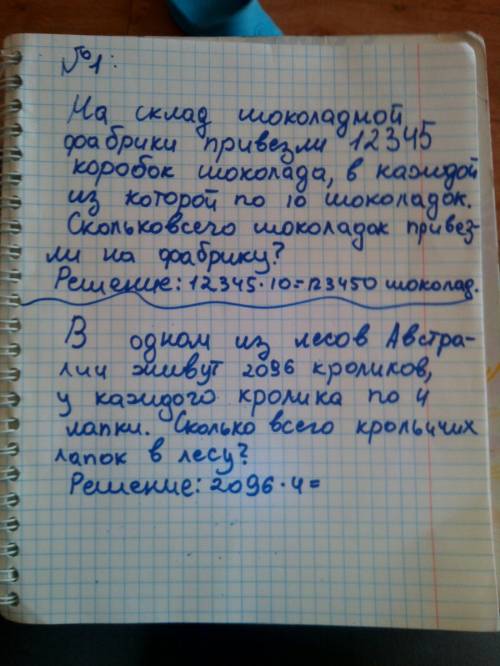 №1:
На склад шоколадной
фабрики привезли 12345
коробок шоколада, в каждой
из которой по 10 шоколадок.
Сколько всего шоколадок привез-
ли на фабрику?
Решение: 12345·10=123450 шоколад.
В одном из лесов Австра-
лии живут 2096 кроликов,
у каждого кролика по 4
лапки. Сколько всего крольичих
лапок в лесу?
Решение: 2096·4=